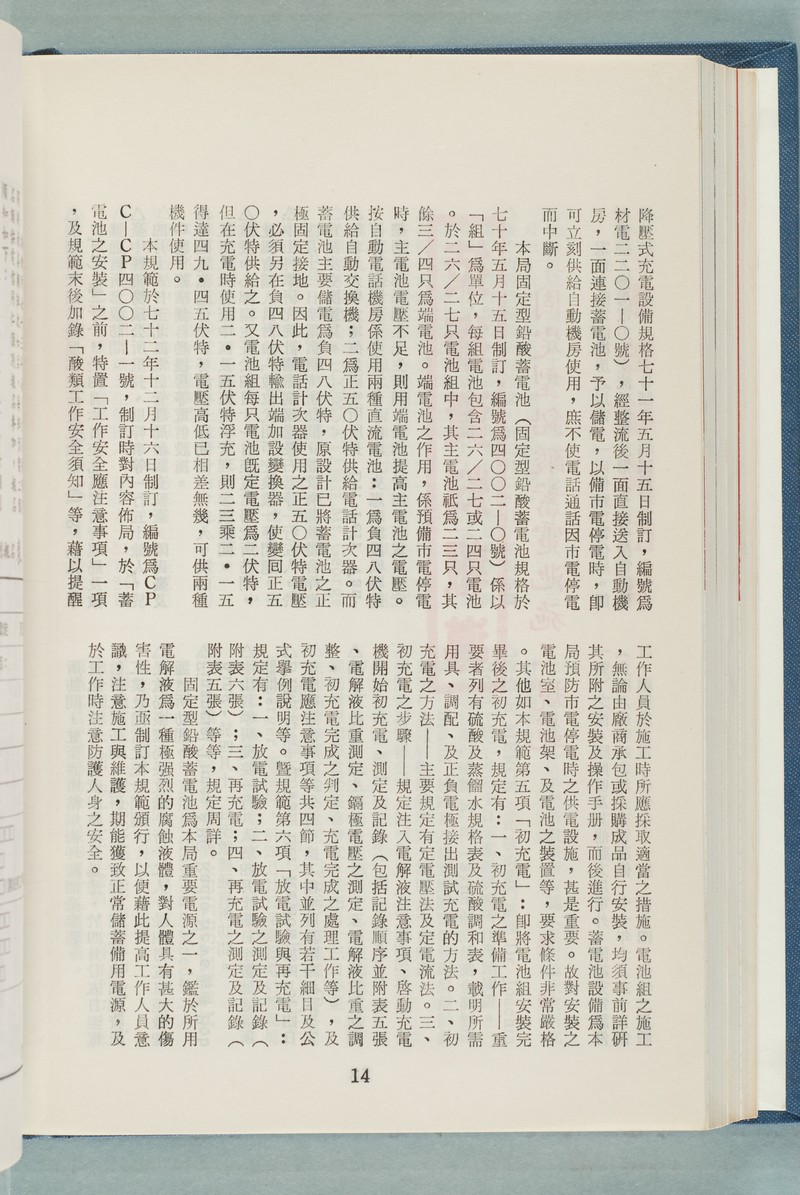 降壓式充電設備規格七十一年五月十五日制訂，編號爲
材電二二〇一—〇號），經整流後一面直接送入自動機
房，一面連接蓄電池，予以儲電，以備市電停電時，卽
可立刻供給自動機房使用，庶不使電話通話因市電停電
而中斷。
本局固定型鉛酸蓄電池（固定型鉛酸蓄電池規格於
七十年五月十五日制訂，編號爲四〇〇二—〇號）係以
「組」爲單位，每組電池包含二六／二七或二四只電池
。於二六／二七只電池組中，其主電池祇爲二三只，其
餘三／四只爲端電池。端電池之作用，係預備市電停電
時，主電池電壓不足，則用端電池提高主電池之電壓。
按自動電話機房係使用兩種直流電池：一爲負四八伏特
供給自動交換機；二爲正五〇伏特供給電話計次器。而
蓄電池主要儲電爲負四八伏特，原設計已將蓄電池之正
極固定接地。因此，電話計次器使用之正五〇伏特電壓
，必須另在負四八伏特輸出端加設變換器，使變囘正五
〇伏特供給之。又電池組每只電池旣定電壓爲二伏特，
但在充電時使用二・一五伏特浮充，則二三乘二・一五
得達四九・四五伏特，電壓高低已相差無幾，可供兩種
機件使用。
本規範於七十二年十二月十六日制訂，編號爲ＣＰ
Ｃ—ＣＰ四〇〇二—一號，制訂時對內容佈局，於「蓄
電池之安裝」之前，特置「工作安全應注意事項」一項
，及規範末後加錄「酸類工作安全須知」等，藉以提醒
工作人員於施工時所應採取適當之措施。電池組之施工
，無論由廠商承包或採購成品自行安裝，均須事前詳硏
其所附之安裝及操作手册，而後進行。蓄電池設備爲本
局預防市電停電時之供電設施，甚是重要。故對安裝之
電池室、電池架、及電池之裝置等，要求條件非常嚴格
。其他如本規範第五項「初充電」：卽將電池組安裝完
畢後之初充電，規定有：一、初充電之準備工作——重
要者列有硫酸及蒸餾水規格表及硫酸調和表，載明所需
用具、調配、及正負電極接出測試充電的方法。二、初
充電之方法——主要規定有定電壓法及定電流法。三、
初充電之步驟——規定注入電解液注意事項、啓動充電
機開始初充電、測定及記錄（包括記錄順序並附表五張
、電解液比重測定、鎘極電壓之測定、電解液比重之調
整、初充電完成之判定、充電完成之處理工作等），及
初充電應注意事項等共四節，其中並列有若干細目及公
式擧例說明等。曁規範第六項「放電試驗與再充電」：
規定有：一、放電試驗；二、放電試驗之測定及記錄（
附表六張）；三、再充電；四、再充電之測定及記錄（
附表五張）等等，規定周詳。
固定型鉛酸蓄電池爲本局重要電源之一，鑑於所用
電解液爲一種極强烈的腐蝕液體，對人體具有甚大的傷
害性，乃亟制訂本規範頒行，以便藉此提高工作人員意
識，注意施工與維護，期能獲致正常儲蓄備用電源，及
於工作時注意防護人身之安全。
14